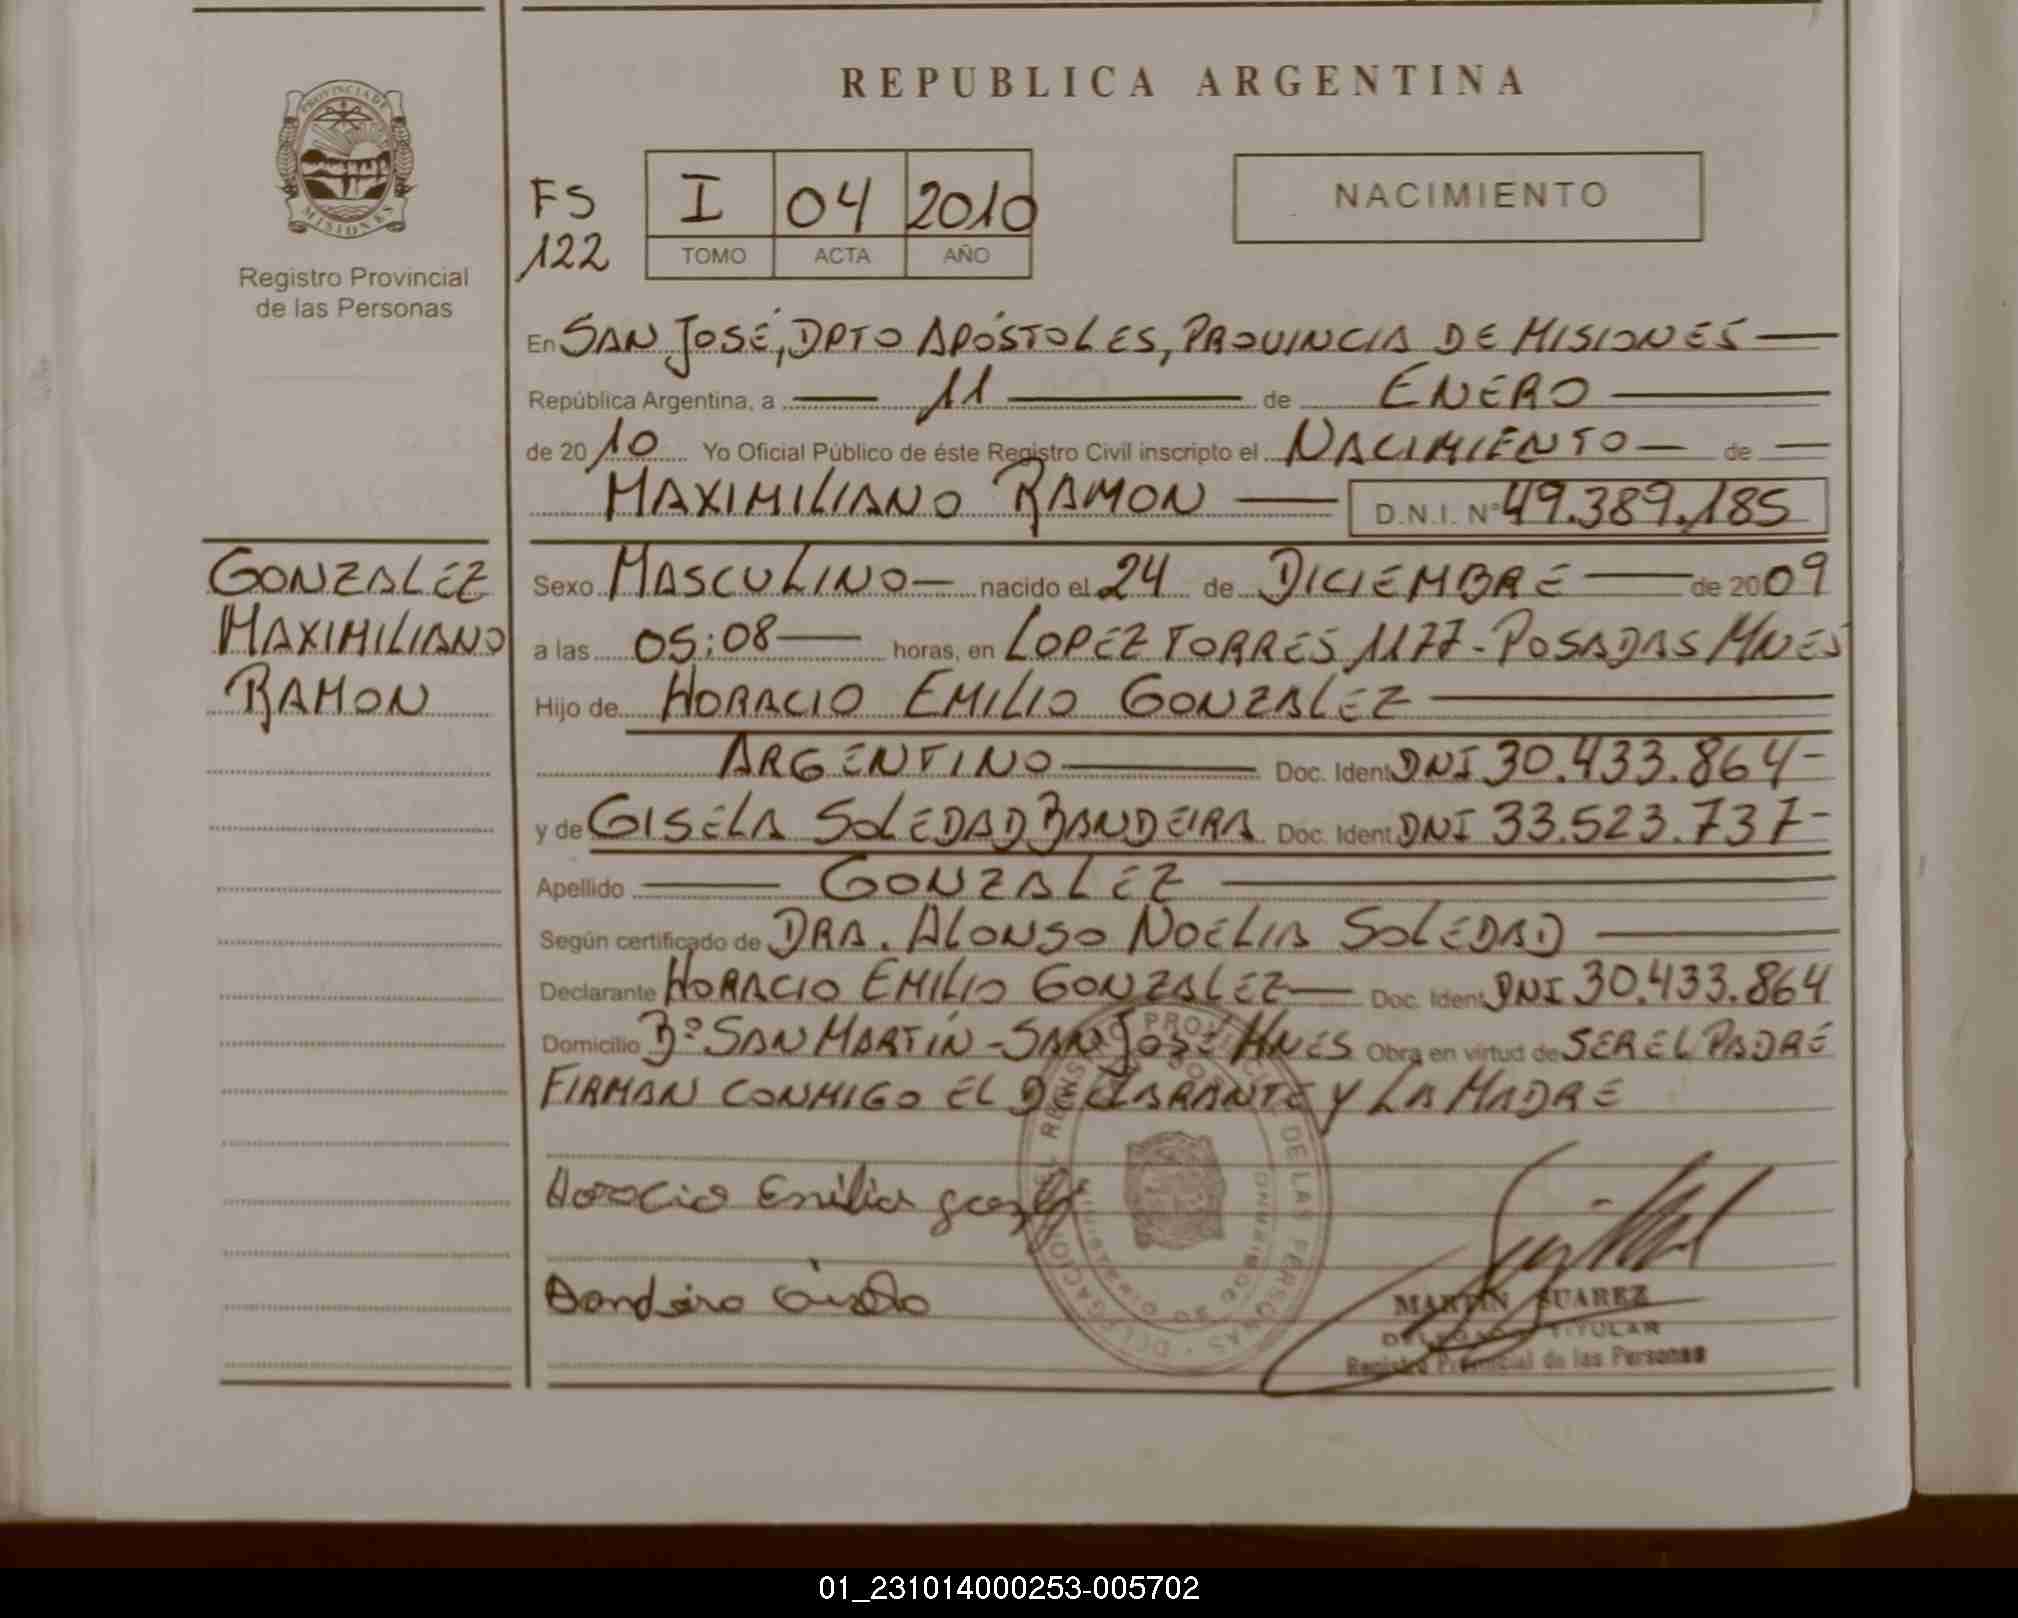 REPUBLICA ARGENTINA
PROVINCIA DE
MISIONES
Registro Provincial
de las Personas
FS
122
I 04 2010
TOMO ACTA AÑO
NACIMIENTO
En SAN JOSÉ, DPTO APÓSTOLES, PROVINCIA DE MISIONES
República Argentina, a 11 de ENERO
de 20 10 Yo Oficial Público de éste Registro Civil inscripto el NACIMIENTO de
MAXIMILIANO RAMON D.N.I. Nº 49.389.185
GONZALEZ
MAXIMILIANO
RAMON
Sexo MASCULINO nacido el 24 de DICIEMBRE de 2009
a las 05:08 horas, en LOPEZ TORRES 1177 - POSADAS MNES
Hijo de HORACIO EMILIO GONZALEZ
ARGENTINO Doc. Ident DNI 30.433.864-
y de GISELA SOLEDAD BANDEIRA Doc. Ident DNI 33.523.737-
Apellido GONZALEZ
Según certificado de DRA. ALONSO NOELIA SOLEDAD
Declarante HORACIO EMILIO GONZALEZ Doc. Ident DNI 30.433.864
Domicilio Bº SAN MARTÍN - SAN JOSÉ MNES Obra en virtud de SER EL PADRE
FIRMAN CONMIGO EL DECLARANTE Y LA MADRE
Horacio Emilio
MARTIN SUAREZ
DELEGADO TITULAR
Registro Provincial de las Personas
01_231014000253-005702